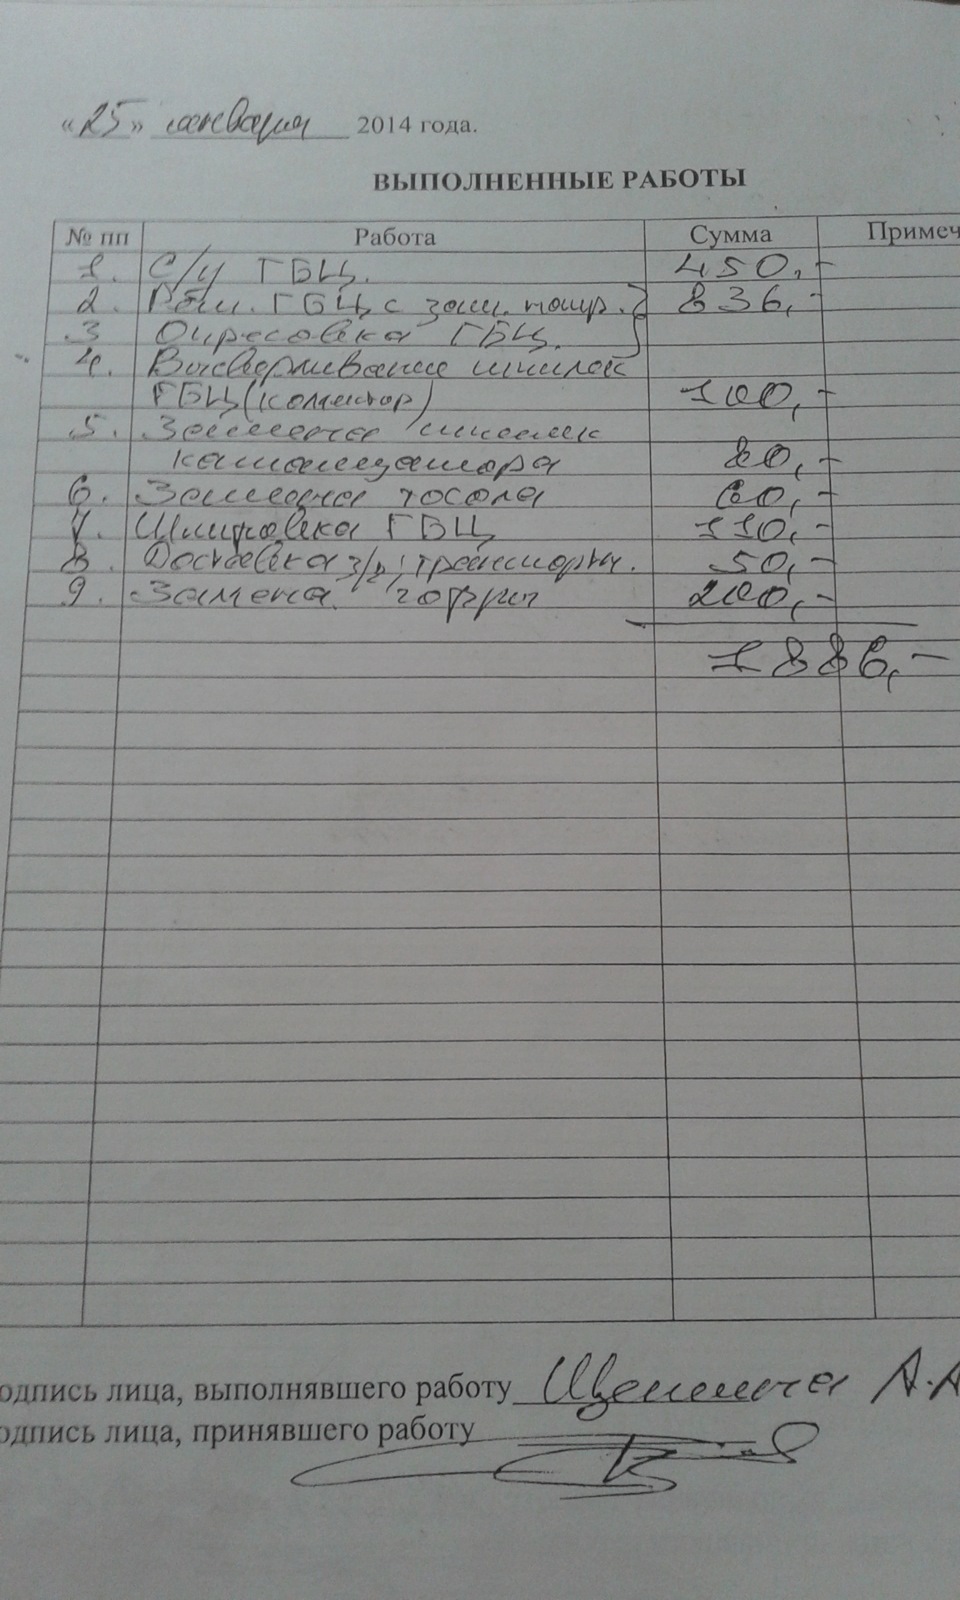 «25» января 2014 года.
ВЫПОЛНЕННЫЕ РАБОТЫ
№ пп Работа Сумма Примеч
1. С/у ГБЦ. 450,-
2. Рем. ГБЦ с зам. напр. 836,-
3 Опресовка ГБЦ.
4. Высверливание шпилек
ГБЦ (колектор) 100,-
5. Замена шпилек
катализатора 80,-
6. Замена тосола 60,-
7. Шлифовка ГБЦ 110,-
8. Доставка з/ч, транспортн. 50,-
9. Замена гофры 200,-
1886,-
одпись лица, выполнявшего работу А.А
одпись лица, принявшего работу